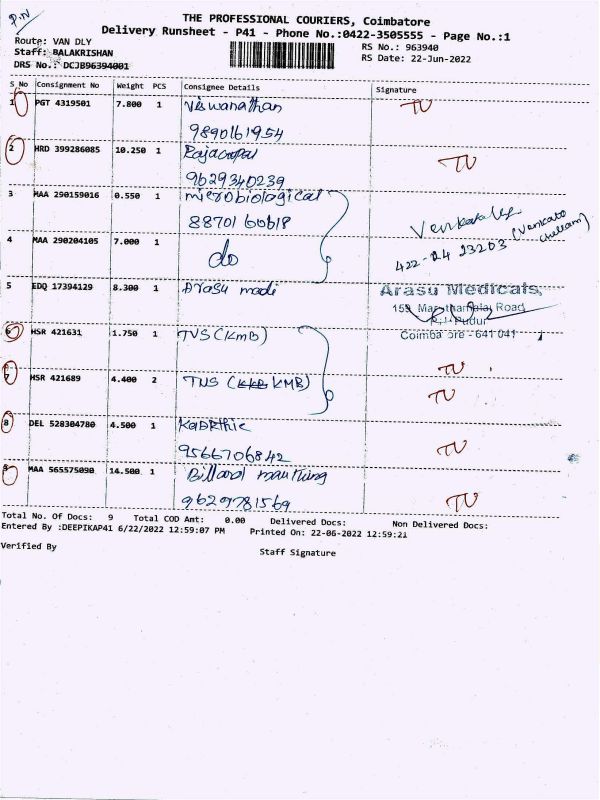 P.N
THE PROFESSIONAL COURIERS, Coimbatore
Delivery Runsheet - P41 - Phone No.:0422-3505555 - Page No.:1
Route: VAN DLY
RS No.: 963940
Staff: BALAKRISHAN
RS Date: 22-Jun-2022
DRS No.: DCJB96394001
S_No Consignment No Weight PCS Consignee Details Signature
1 PGT 4319501 7.800 1 Viswanathan TU
9890161954
2 HRD 399286085 10.250 1 Rajagopal TU
9629340239
3 MAA 290159016 0.550 1 microbiological
8870160618
4 MAA 290204105 7.000 1 do
422-24 23203
5 EDQ 17394129 8.300 1 Arasu medi Arasu Medicals,
159 Road
Coimbatore - 641 041
6 HSR 421631 1.750 1 TVS (KMB) TU
7 HSR 421689 4.400 2 TVS (KMB) TU
8 DEL 528304780 4.500 1 Kaarthic TU
9566706842
9 MAA 565575090 14.500 1 Billard TU
9629781569
Total No. Of Docs: 9 Total COD Amt: 0.00 Delivered Docs: Non Delivered Docs:
Entered By :DEEPIKAP41 6/22/2022 12:59:07 PM Printed On: 22-06-2022 12:59:21
Verified By
Staff Signature